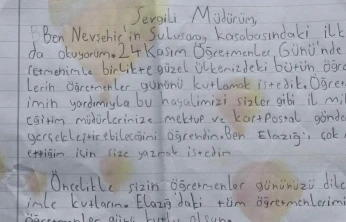 Sevgili Müdürüm,
Ben Nevşehir'in Sulusaray kasabasındaki ilk
da okuyorum. 24 Kasım Öğretmenler Günü'nde
retmenimle birlikte güzel ülkemizdeki bütün öğre
lerin öğretmenler gününü kutlamak istedik. Öğret
imin yardımıyla bu hayalimizi sizler gibi il mil
eğitim müdürlerinize mektup ve kartpostal gönde
gerçekleştirebileceğimi öğrendim. Ben Elazığ'ı çok
ettiğim için size yazmak istedim
Öncelikle sizin öğretmenler gününüzü dile
imle kutlarım. Elazığ'daki tüm öğretmenlerimi
öğretmenler günü kutlu olsun.